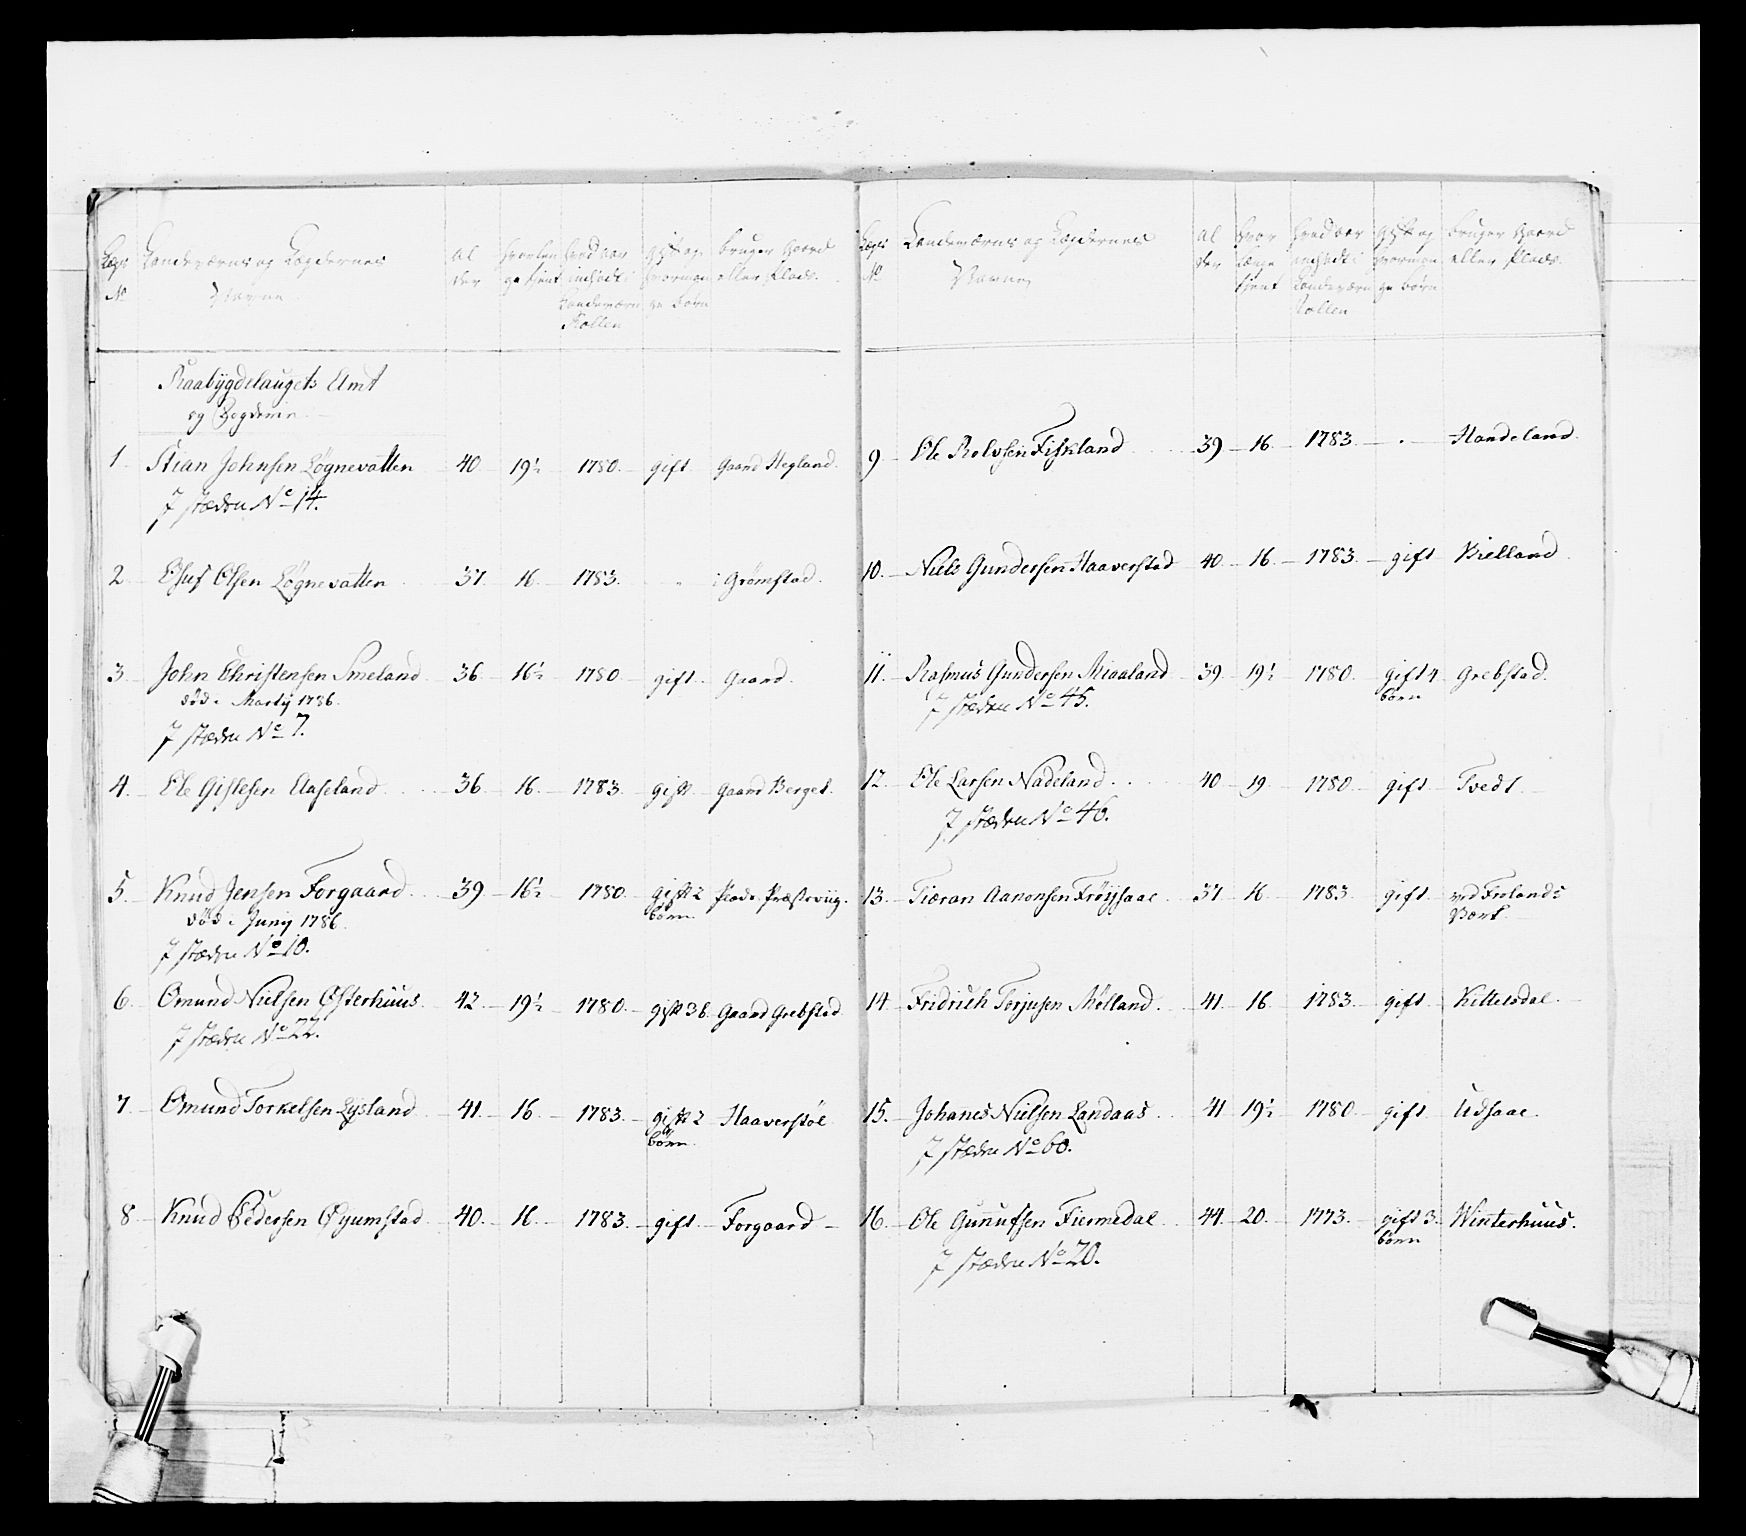 Lægs No | Landeværns og Lægdernes Navne | Al der | hvorlen ge tjent | hvad aar indsadt i Landeværn Rollen | gift og hvormange børn | bruger Gaard eller Plads
Raabÿgdelaugets Amt
og Fogderie
1 Stian Johnsen Løgnevatten 40 19½ 1780 gift Gaard Hegland
I stæden No 14.
2 Esuf Olsen Løgnevatten 37 16 1783 i Grømstad
3 John Christensen Smeland 36 16½ 1780 gift Gaard
død i Martÿ 1786
I stæden No 7.
4 Ole Gislesen Aaseland 36 16 1783 gift Gaard Berget
5 Knud Jensen Forgaard 39 16½ 1780 gift 2 børn Plads Præstevÿg
død i Junÿ 1786
I stæden No 10.
6 Omund Nielsen Østerhuus 42 19½ 1780 gift 3 b Gaard Grebstad
I stæden No 22.
7 Omund Torkelsen Lÿsland 41 16 1783 gift 2 børn Haaverstøl
8 Knud Pedersen Øÿumstad 40 16 1783 gift Forgaard
Lægs No | Landeværns og Lægdernes Navne | Al der | hvor længe tjent | hvad aar indsadt i Landeværn Rollen | gift og hvormange børn | bruger Gaard eller Plads
9 Ole Rolvsen Fiskland 39 16 1783 . Handeland
10. Niels Gundersen Haaverstad 40 16 1783 gift Birelland
11. Rasmus Gundersen Miaaland 39 19½ 1780 gift 4 børn Grebstad
I stæden No 45.
12. Ole Larsen Nadeland 40 19 1780 gift Tvedt
I stæden No 46.
13. Tiæran Aanonsen Frøÿsaae 37 16 1783 gift ved Frolands Værk
14 Fridrich Torjusen Mølland 41 16 1783 gift Kittelsdal
15. Johanes Nielsen Landaas 41 19½ 1780 gift Udsaae
I stæden No 60.
16. Ole Gunufsen Fiermedal 44 20 1773 gift 3 børn Winterhuus.
I stæden No 20.